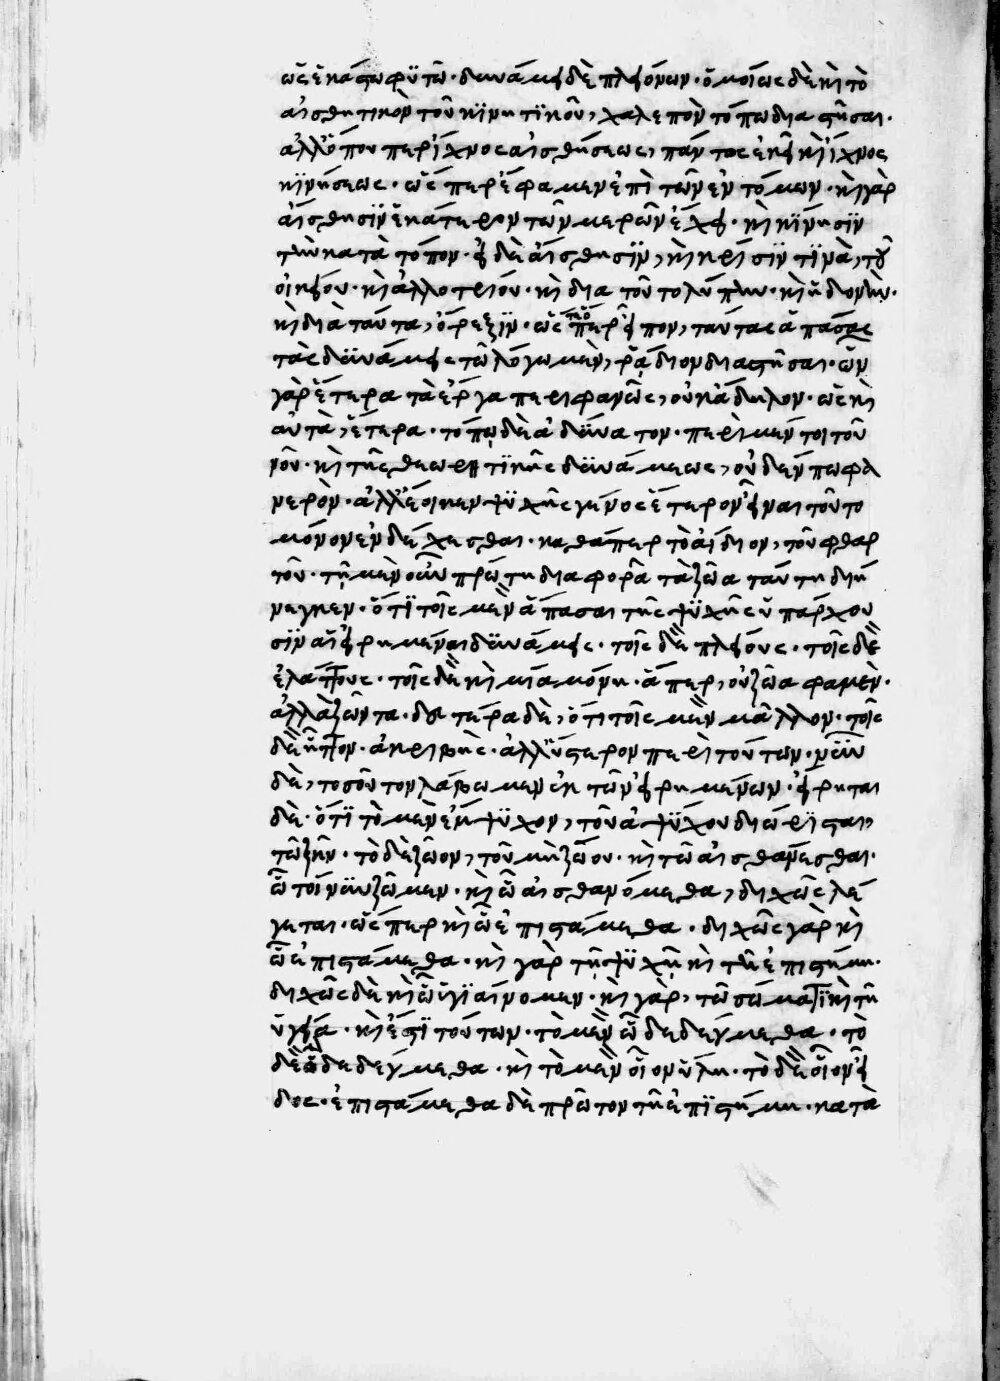 ὡς ἑκάστω φυτῶ· δυνάμει δὲ πλειόνων· ὁμοίως δὲ κὶ τὸ
αἰσθητικὸν τοῦ κινητικοῦ, χαλεπὸν τόπω διαστῆσαι·
ἀλλ' ὅπου περ ἴχνος αἰσθήσεως, πάντος ἐκεῖ κὶ ἴχνος
κινήσεως· ὥσπερ ἔφαμεν ἐπὶ τῶν ἐντόμων· κὶ γὰρ
αἴσθησιν ἑκάτερον τῶν μερῶν ἔχει· κὶ κίνησιν
τὴν κατὰ τόπον· εἰ δὲ αἴσθησιν, κὶ κρίσιν τινὰ, τοῦ
οἰκείου· κὶ ἀλλοτρίου· κὶ διὰ τοῦτο λύπην· κὶ ἡδονήν·
κὶ διὰ ταῦτα, ὄρεξιν· ὥσπερ εἶπον, ταύτας ἁπάσας
τὰς δυνάμεις τῶ λόγω μὲν, ῥάδιον διαστῆσαι· ὧν
γὰρ ἕτερα τὰ ἔργα περιφανῶς, οὐκ ἄδηλον· ὡς κὶ
αὐτὰ, ἕτερα· τόπω δὲ ἀδύνατον· περὶ μέν τοι τοῦ
νοῦ· κὶ τῆς θεωρητικῆς δυνάμεως, οὐδέν πω φα
νερὸν· ἀλλ' ἔοικεν ψυχῆς γένος ἕτερον εἶναι τοῦτο
μόνον ἐνδέχεσθαι· καθάπερ τὸ ἀίδιον, τοῦ φθαρ
τοῦ· τῆ μὲν οὖν πρώτη διαφορᾶ τὰ ζῶα ταύτη διή
νεγκεν· ὅτι τοῖς μὲν ἅπασαι τῆς ψυχῆς ὑπάρχου
σιν αἱ εἰρημέναι δυνάμεις· τοῖς δὲ πλείους· τοῖς δὲ
ἐλάττους· τοῖς δὲ κὶ μία μόνη· ἅπερ, οὐ ζῶα φαμὲν·
ἀλλὰ ζῶντα· δευτέρα δὲ, ὅτι τοῖς μὲν μᾶλλον· τοῖς
δὲ ἧττον· ἀκριβὴς· ἀλλ' ὕστερον περὶ τούτων· νῦν
δὲ, τοσοῦτον λάβωμεν ἐκ τῶν εἰρημένων· εἴρηται
δὲ· ὅτι τὸ μὲν ἔμψυχον, τοῦ ἀψύχου διώρισται,
τῶ ζῆν· τὸ δὲ ζῶον, τοῦ μὴ ζώου· κὶ τῶ αἰσθάνεσθαι·
ὧ τοίνυν ζῶμεν· κὶ ὧ αἰσθανόμεθα, διχῶς λέ
γεται· ὥσπερ κὶ ὧ ἐπιστάμεθα· διχῶς γὰρ κὶ
ὧ ἐπιστάμεθα· κὶ γὰρ τῆ ψυχῆ κὶ τῆ ἐπιστήμη·
διχῶς δὲ κὶ ὧ ὑγιαίνομεν· κὶ γὰρ, τῶ σώματι κὶ τῆ
ὑγεία· κὶ ἔστι τούτων· τὸ μὲν ὧ δεδείγμεθα· τὸ
δὲ ὃ δεδείγμεθα· κὶ τὸ μὲν οἷον ὕλη· τὸ δὲ οἷον εἶ
δος· ἐπιστάμεθα δὲ πρῶτον τῆ ἐπιστήμη· κατὰ